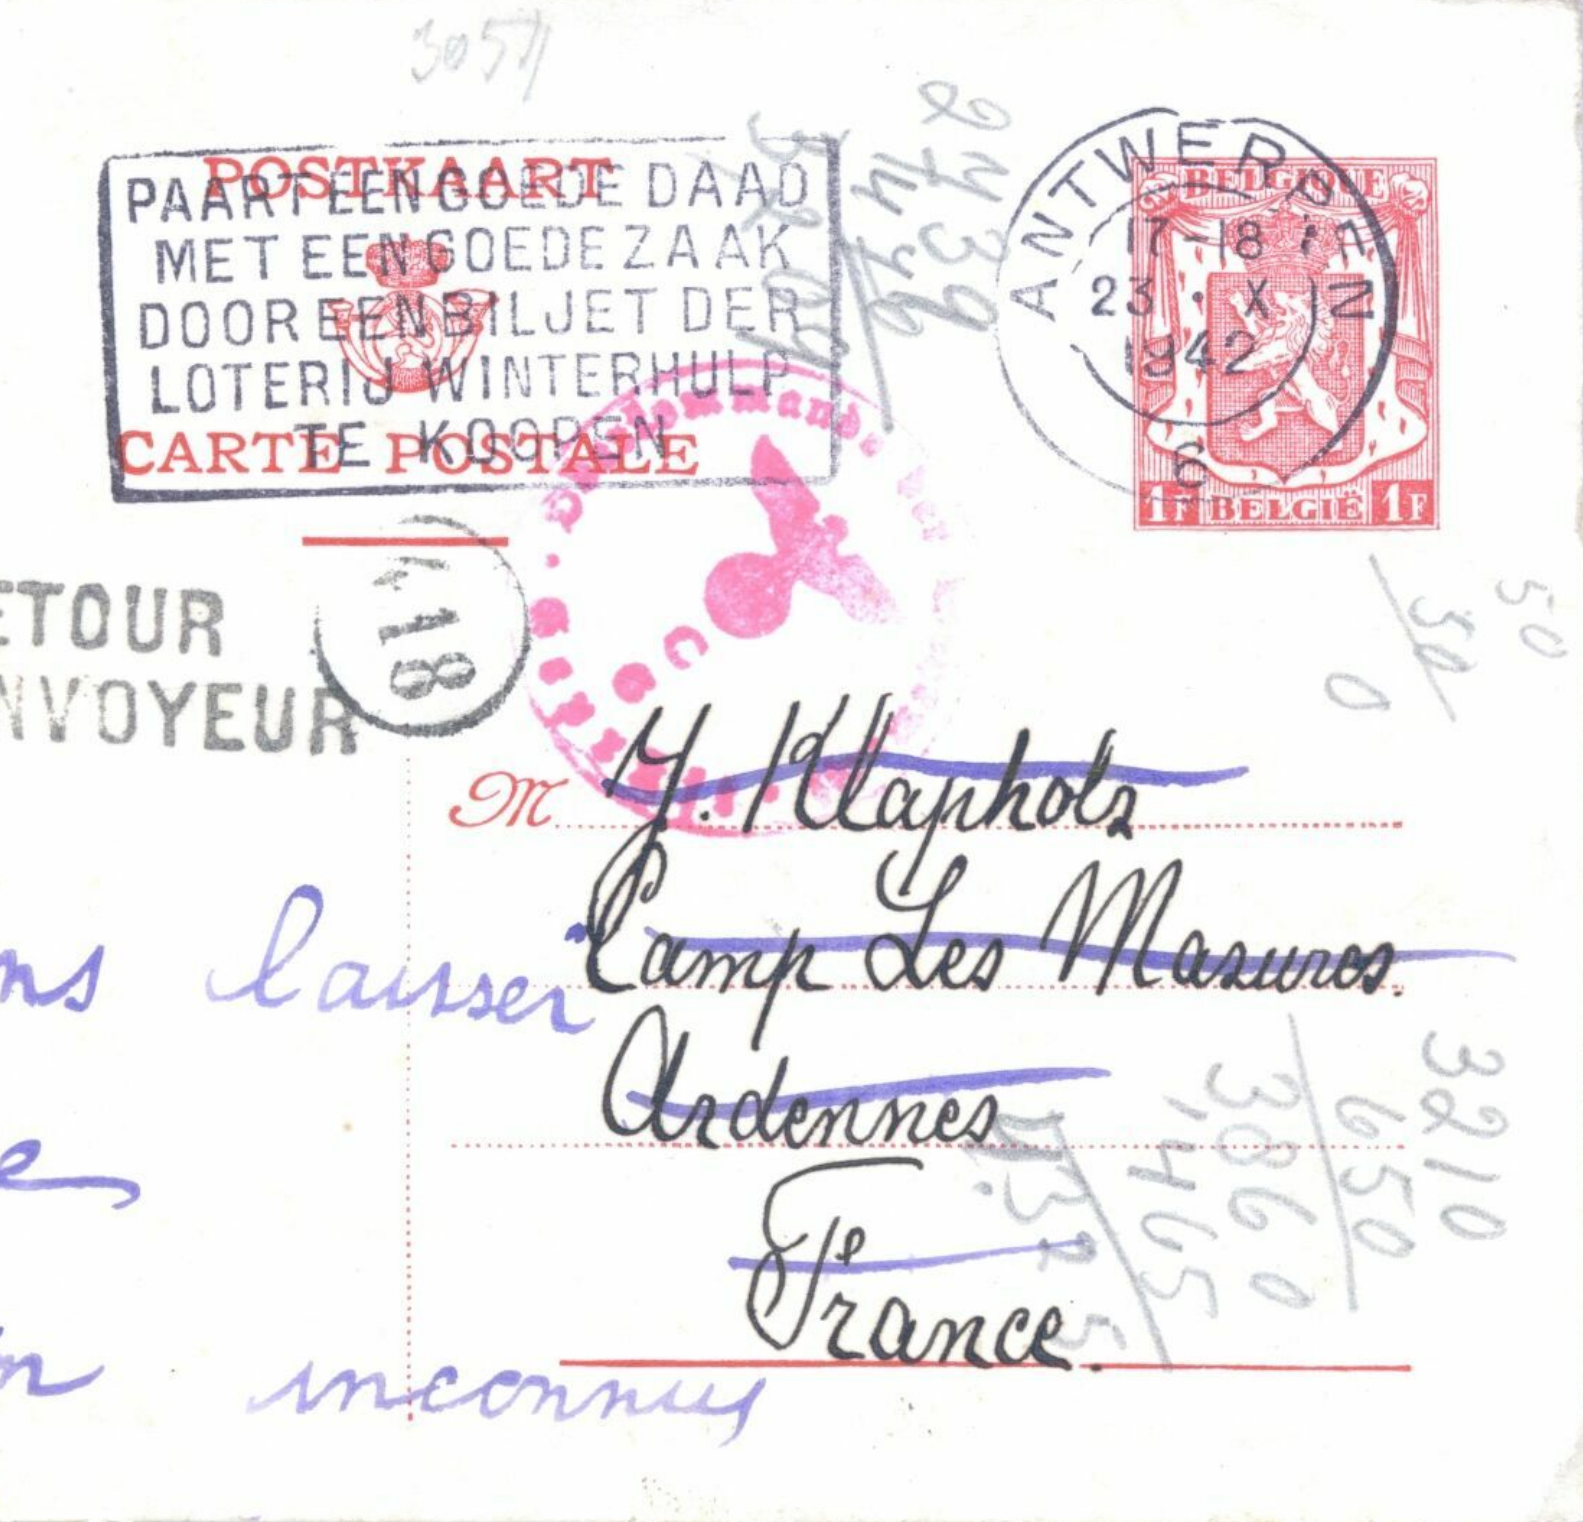 3051
POSTKAART
PAART EEN GOEDE DAAD
MET EEN GOEDE ZAAK
DOOR EEN BILJET DER
LOTERIJ WINTERHULP
TE KOOPEN
CARTE POSTALE
ANTWERPEN
17-18
23 · X
1942
6
BELGIQUE
1F BELGIË 1F
2439
7476
50
50
0
ETOUR
NVOYEUR
418
M J. Klapholz
Camp Les Masures.
Ardennes
France.
ns laisser
e
inconnus
3210
650
3860
14465